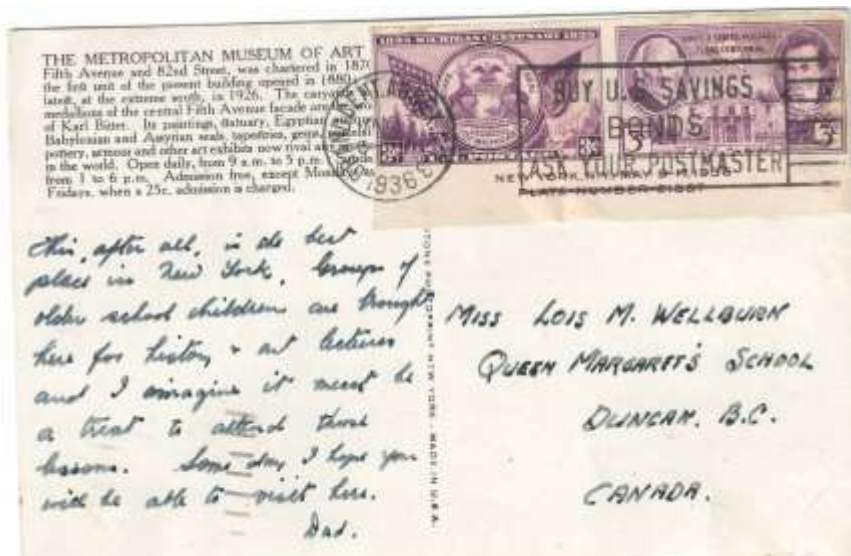 THE METROPOLITAN MUSEUM OF ART
Fifth Avenue and 82nd Street, was chartered in 1870
the first unit of the present building opened in 1880
latest, at the extreme south, in 1926. The caryatids
medallions of the central Fifth Avenue facade are
of Karl Bitter. Its paintings, statuary, Egyptian
Babylonian and Assyrian seals, tapestries, gems,
pottery, armour and other art exhibits now rival any
in the world. Open daily, from 9 a.m. to 5 p.m.
from 1 to 6 p.m. Admission free, except Mondays
Fridays, when a 25c. admission is charged.
1835 MICHIGAN CENTENARY 1935
3¢
3¢
1936
BUY U.S. SAVINGS
BONDS
ASK YOUR POSTMASTER
NEW YORK, N.Y., MAY 9-17, 1936
PLATE NUMBER 21557
This, after all, is the best
place in New York. Groups of
older school children are brought
here for history & art lectures
and I imagine it must be
a treat to attend those
lessons. Some day I hope you
will be able to visit here.
Dad.
NEW YORK - MADE IN U.S.A.
MISS LOIS M. WELLBURN
QUEEN MARGARET'S SCHOOL
DUNCAN, B.C.
CANADA.